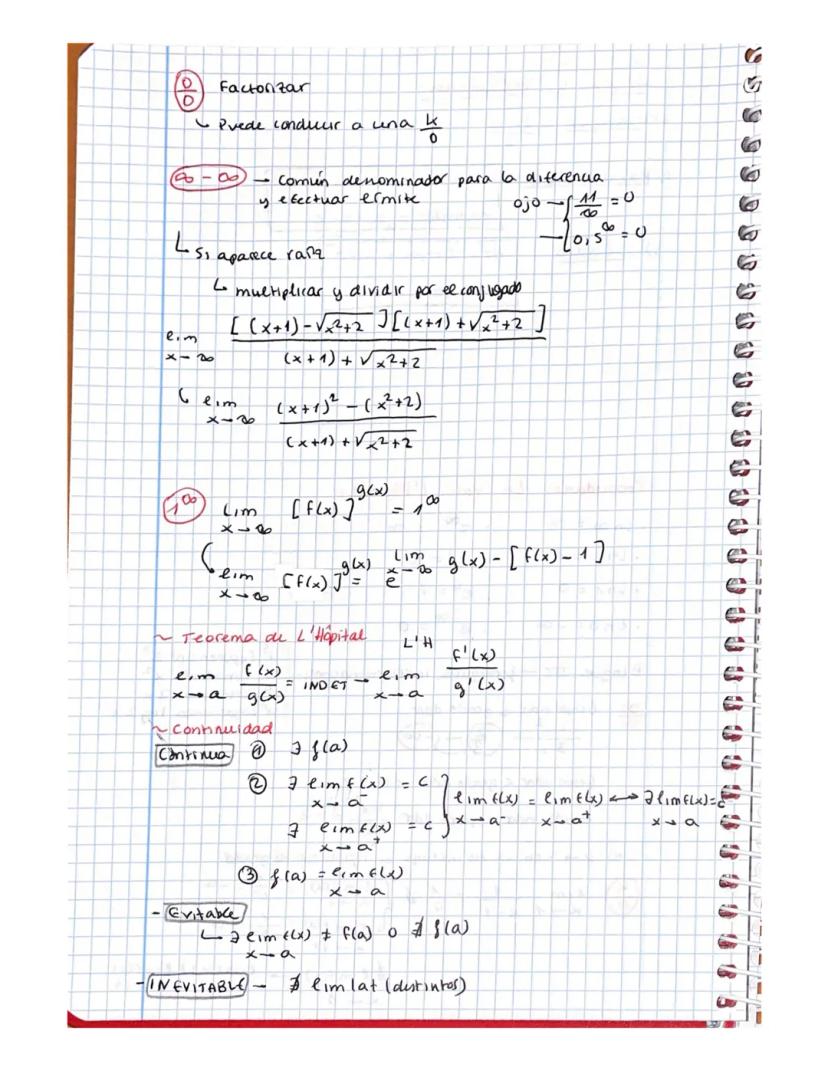 0/0 Factorizar
↳ Puede conducir a una k/0
∞ - ∞ → Común denominador para la diferencia
y efectuar límite ojo → { 11/∞ = 0
→ { 0,5^∞ = 0
↳ Si aparece raíz
↳ multiplicar y dividir por el conjugado
lim x→∞ [(x+1)-√x²+2][(x+1)+√x²+2] / (x+1)+√x²+2
↳ lim x→∞ (x+1)² - (x²+2) / (x+1)+√x²+2
1^∞ Lim x→∞ [f(x)]^g(x) = 1^∞
↳ lim x→∞ [f(x)]^g(x) = e^ Lim x→∞ g(x) - [f(x) - 1]
~ Teorema de L'Hôpital
lim x→a f(x)/g(x) = INDET → L'H lim x→a f'(x)/g'(x)
~ Continuidad
Continua ① ∃ f(a)
② ∃ lim f(x) = c x→a⁻
∃ lim f(x) = c x→a⁺ } lim f(x) x→a⁻ = lim f(x) x→a⁺ ↔ ∃ lim f(x) = c x→a
③ f(a) = lim f(x) x→a
- Evitable
↳ ∃ lim f(x) x→a ≠ f(a) o ∄ f(a)
- INEVITABLE - ∄ lim lat (distintos)